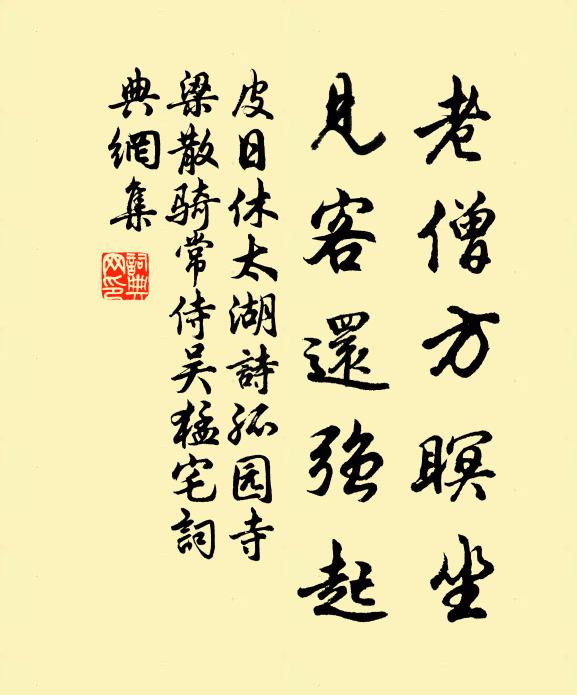 老僧方瞑坐
見客還強起
皮日休太湖詩孤园寺
梁散騎常侍吴猛宅詞
典網集
詞典網印